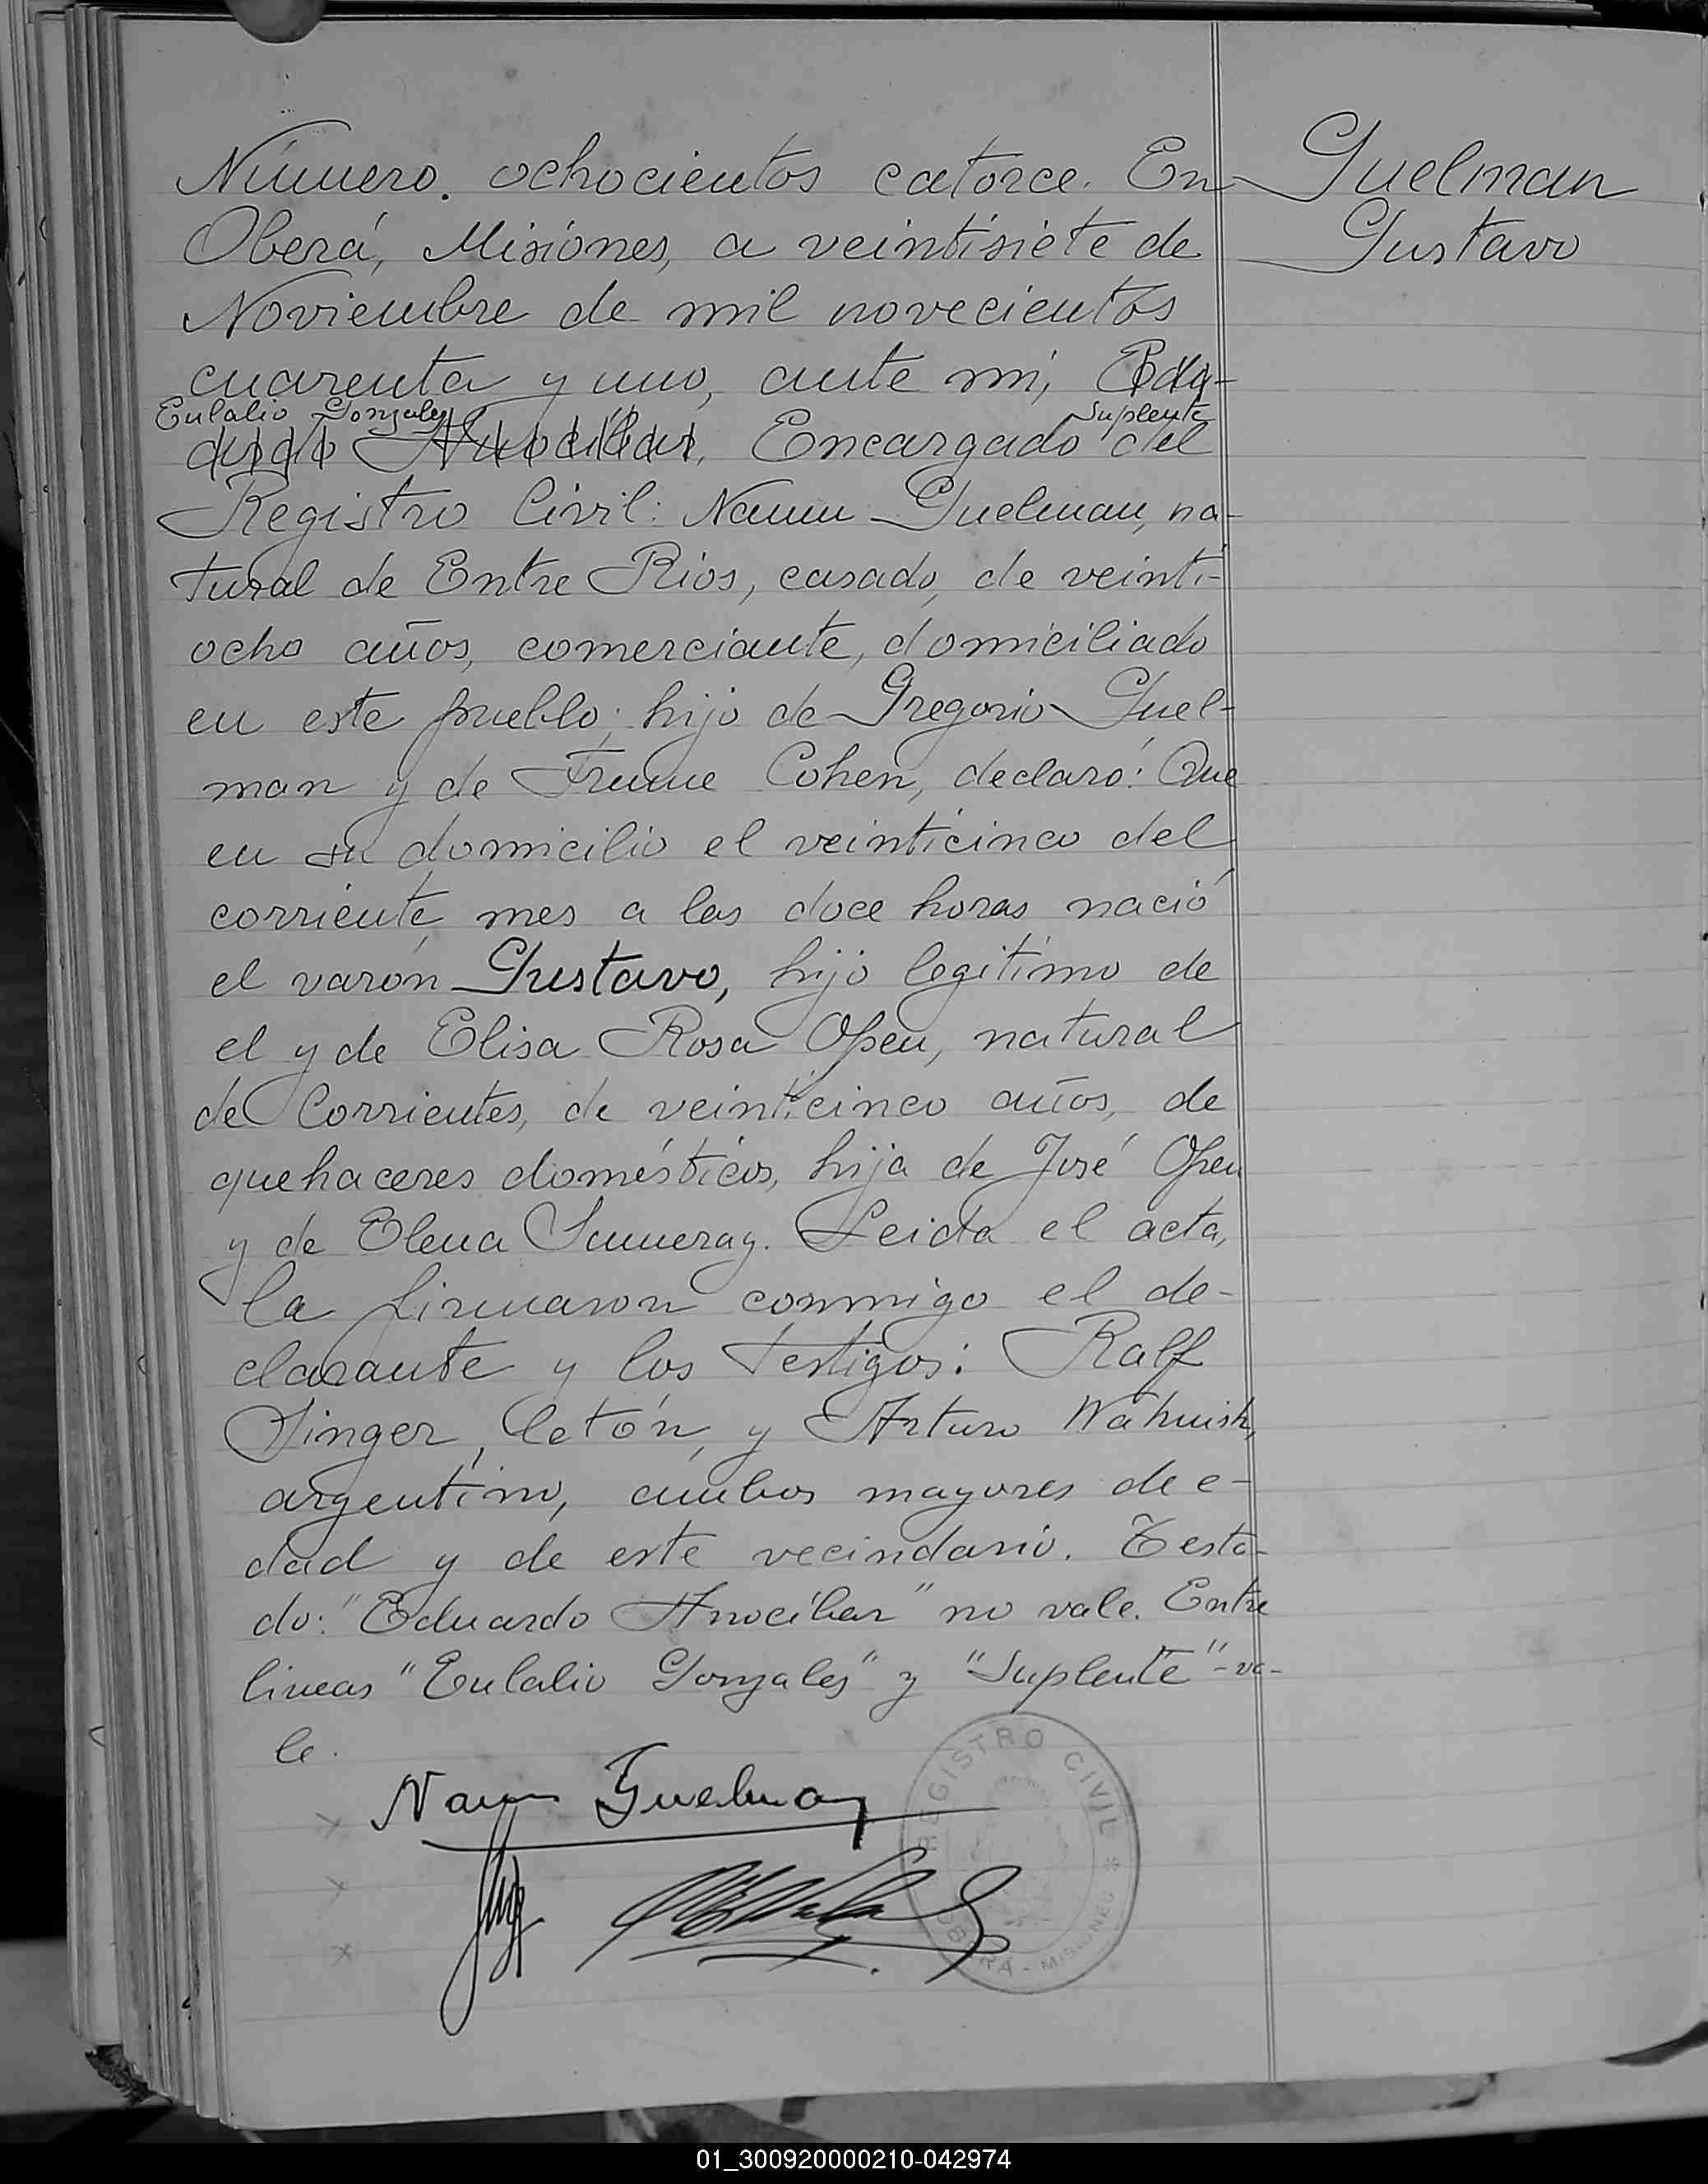 Número. ochocientos catorce. En
Oberá, Misiones, a veintisiete de
Noviembre de mil novecientos
cuarenta y uno, ante mi,
Eulalio Gonzales Suplente
Encargado del
Registro Civil: Naum Guelman, na-
tural de Entre Rios, casado, de veinti-
ocho años, comerciante, domiciliado
en este pueblo; hijo de Gregorio Guel-
man y de Frume Cohen, declaró: Que
en su domicilio el veinticinco del
corriente mes a las doce horas nació
el varón Gustavo, hijo legitimo de
el y de Elisa Rosa Open, natural
de Corrientes, de veinticinco años, de
quehaceres domésticos, hija de José Open
y de Elena. Leida el acta,
la firmaron conmigo el de-
clarante y los testigos: Ralf
Singer, letón, y Arturo
argentino, ambos mayores de e-
dad y de este vecindario. Testa-
do: "Eduardo Arrocibar" no vale. Entre
lineas "Eulalio Gonzales" y "Suplente" - va-
le.
Guelman
Gustavo
Naum Guelman
REGISTRO CIVIL * OBERÁ - MISIONES
01_300920000210-042974